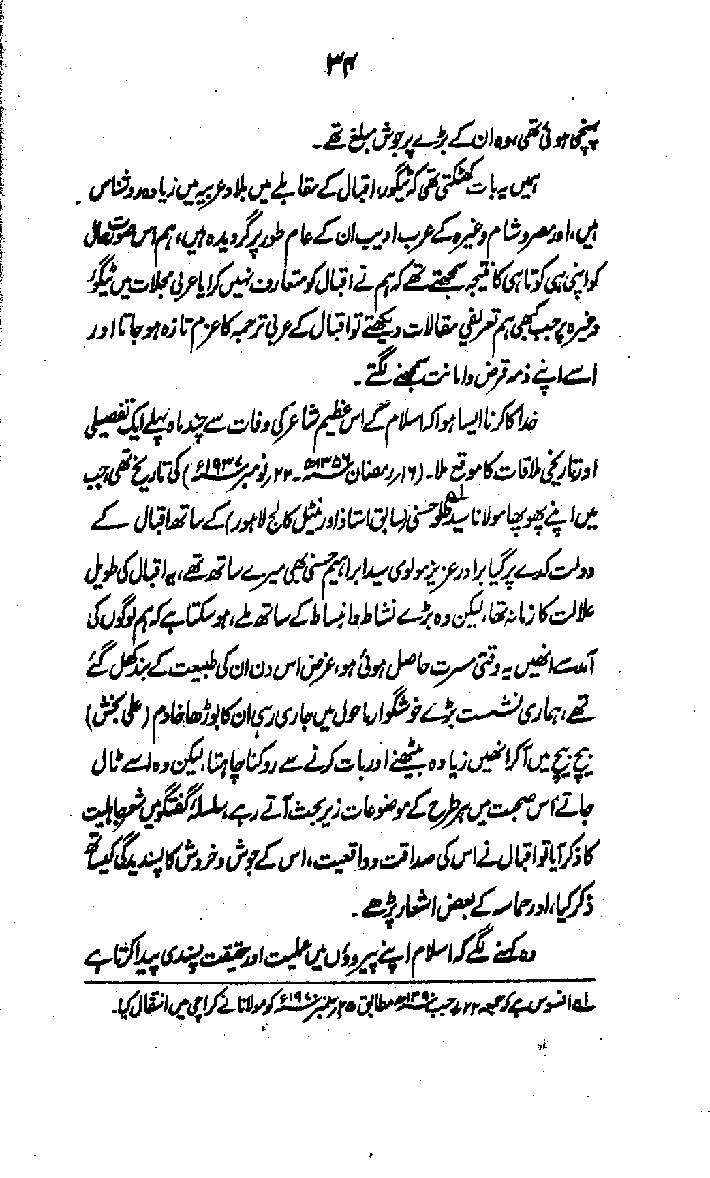 ۳۴
پہنچی ہوئی تھی، وہ ان کے بڑے پرجوش مبلغ تھے۔
ہمیں یہ بات کھٹکتی تھی کہ ٹیگور، اقبال کے مقابلے میں بلاد عربیہ میں زیادہ روشناس
ہیں، اور مصر و شام وغیرہ کے عرب ادیب ان کے عام طور پر گرویدہ ہیں، ہم اس صورت حال
کو اپنی ہی کوتاہی کا نتیجہ سمجھتے تھے کہ ہم نے اقبال کو متعارف نہیں کرایا عربی مجلات میں ٹیگور
وغیرہ پر جب کبھی ہم تعریفی مقالات دیکھتے تو اقبال کے عربی ترجمہ کا عزم تازہ ہو جاتا اور
اسے اپنے ذمہ قرض و امانت سمجھنے لگتے۔
خدا کا کرنا ایسا ہوا کہ اسلام کے اس عظیم شاعر کی وفات سے چند ماہ پہلے ایک تفصیلی
اور تاریخی ملاقات کا موقع ملا۔ (۱۶ رمضان ۱۳۵۶ھ۔ ۲۲ نومبر ۱۹۳۷ء) کی تاریخ تھی، جب
میں اپنے پھوپھا مولانا سید طلحہ حسنی (سابق استاذ اورینٹل کالج لاہور)لہ کے ساتھ اقبال کے
دولت کدے پر گیا برادر عزیز مولوی سید ابراہیم حسنی بھی میرے ساتھ تھے، یہ اقبال کی طویل
علالت کا زمانہ تھا، لیکن وہ بڑے نشاط و انبساط کے ساتھ ملے، ہو سکتا ہے کہ ہم لوگوں کی
آمد سے انھیں یہ وقتی مسرت حاصل ہوئی ہو، غرض اس دن ان کی طبیعت کے بند کھل گئے
تھے، ہماری نشست بڑے خوشگوار ماحول میں جاری رہی ان کا بوڑھا خادم (علی بخش)
بیچ بیچ میں آکر انھیں زیادہ بیٹھنے اور بات کرنے سے روکنا چاہتا، لیکن وہ اسے ٹال
جاتے اس صحبت میں ہر طرح کے موضوعات زیر بحث آتے رہے، سلسلۂ گفتگو میں شعر جاہلیت
کا ذکر آیا تو اقبال نے اس کی صداقت و واقعیت، اس کے جوش و خروش کا پسندیدگی کیساتھ
ذکر کیا، اور حماسہ کے بعض اشعار پڑھے۔
وہ کہنے لگے کہ اسلام اپنے پیروؤں میں عملیت اور حقیقت پسندی پیدا کرتا ہے
لہ افسوس ہے کہ جمعہ ۲۲ رجب ۱۳۹۰ھ مطابق ۲۵ ستمبر ۱۹۷۰ء کو مولانا نے کراچی میں انتقال کیا۔